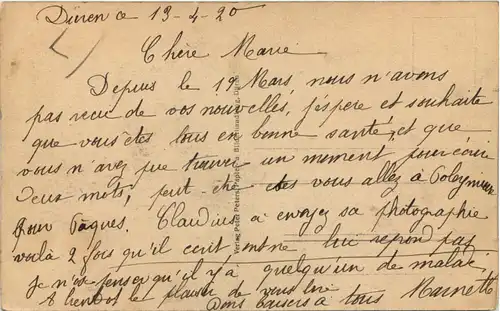 Düren ce 13-4-20
Chère Marie
Depuis le 17 Mars, nous n'avons
pas reçu de vos nouvelles, j'espère et souhaite
que vous êtes tous en bonne santé, et que
vous n'avez pue trouver un moment pour écrire
deux mots, peut-etre etes vous allez à
pour Pâques. Claudius a envoyez sa photographie
voilà 2 fois qu'il ecrit, on ne lui repond pas
Je n'ose penser qu'il y a quelqu'un de malade,
A bientot le plaisir de vous lire
Bons baisers à tous
Verlag Peter